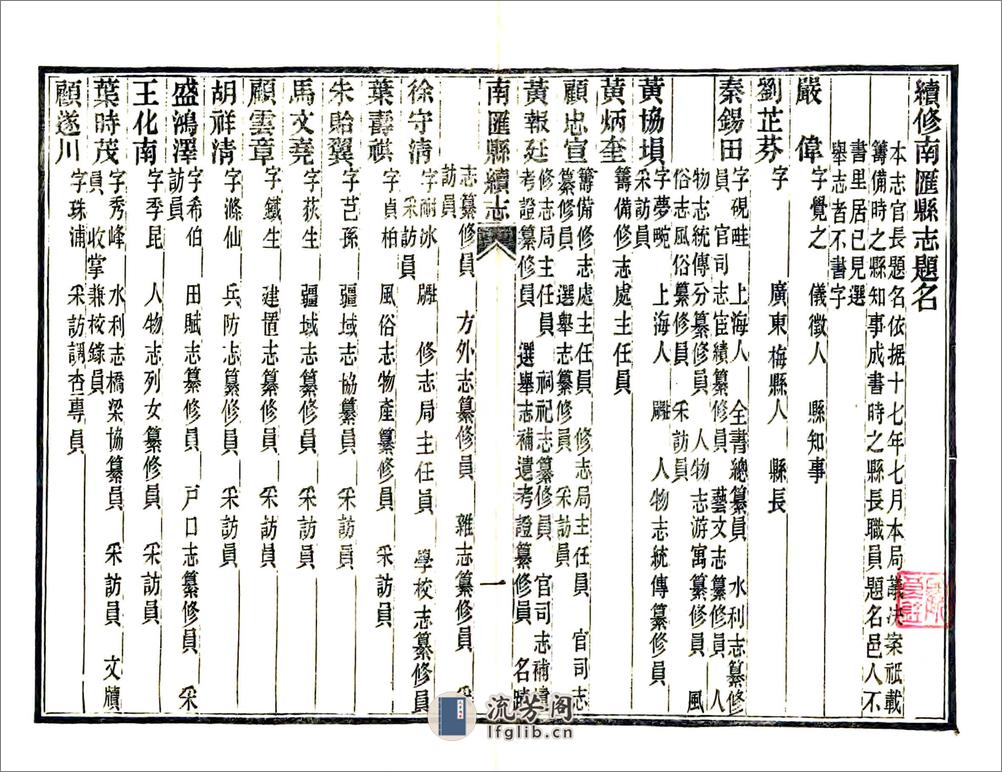 續修南匯縣志題名
本志官長題名依据十七年七月本局議決案祇載
籌備時之縣知事成書時之縣長職員題名邑人不
書里居已見選
舉志者不書字
嚴偉 字覺之 儀徵人 縣知事
劉芷芬 字 廣東梅縣人 縣長
秦錫田 字硯畦 上海人 全書總纂員 水利志纂修
員 官司志宦績纂修員 藝文志纂修員 人
物志統傳分纂修員 人物志游寓纂修員 風
俗志風俗纂修員 采訪員
黃協塤 字夢畹 上海人 辭 人物志統傳纂修員
采訪員
黃炳奎 籌備修志處主任員
顧忠宣 籌備修志處主任員 修志局主任員 官司志
纂修員 選舉志纂修員 采訪員
黃報廷 修志局主任員 祠祀志纂修員 官司志補遺
考證纂修員 選舉志補遺考證纂修員 名蹟
南匯縣續志 一
志纂修員 方外志纂修員 雜志纂修員 采
訪員
徐守清 字耐冰 辭 修志局主任員 學校志纂修員
采訪員
葉壽祺 字貞柏 風俗志物產纂修員 采訪員
朱貽翼 字芑孫 疆域志協纂員 采訪員
馬文堯 字荻生 疆域志纂修員 采訪員
顧雲章 字鐵生 建置志纂修員 采訪員
胡祥清 字滌仙 兵防志纂修員 采訪員
盛鴻澤 字希伯 田賦志纂修員 戶口志纂修員 采
訪員
王化南 字季昆 人物志列女纂修員 采訪員
葉時茂 字秀峰 水利志橋梁協纂員 采訪員 文牘
員 收掌兼校錄員
顧遂川 字珠浦 采訪調查專員
流芳阁
lfglib.cn